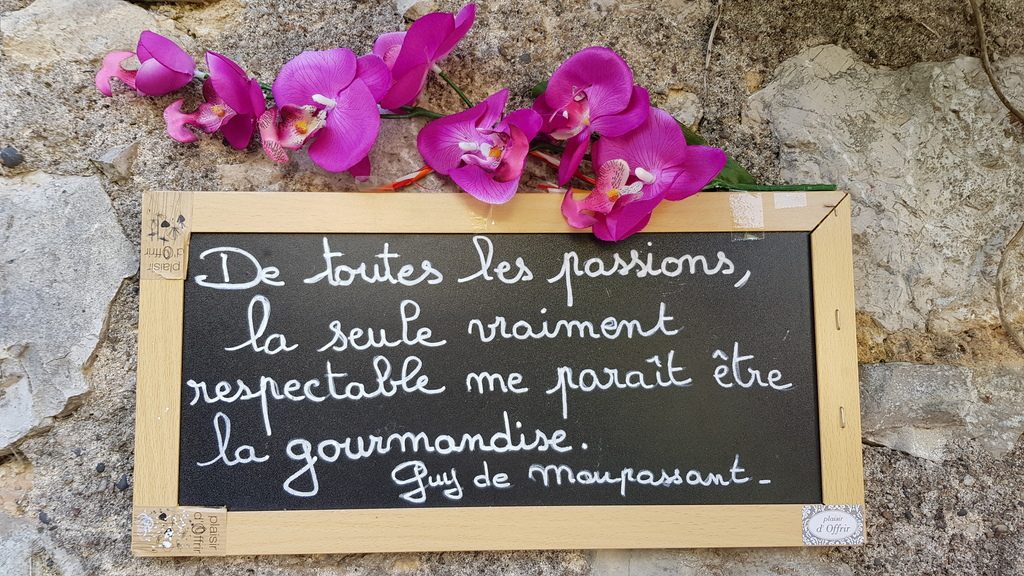 De toutes les passions,
la seule vraiment
respectable me paraît être
la gourmandise.
Guy de Maupassant_
plaisir
d'Offrir
plaisir
d'Offrir
plaisir
d'Offrir